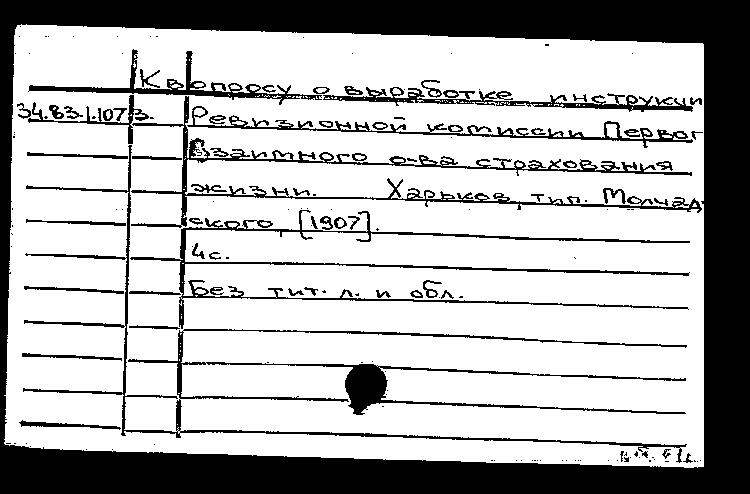 К вопросу о выработке инструкци
34.83.1.107/3. Ревизионной комиссии Первог
Взаимного о-ва страхования
жизни. Харьков, тип. Молчад
ского, [1907].
4с.
Без тит. л. и обл.